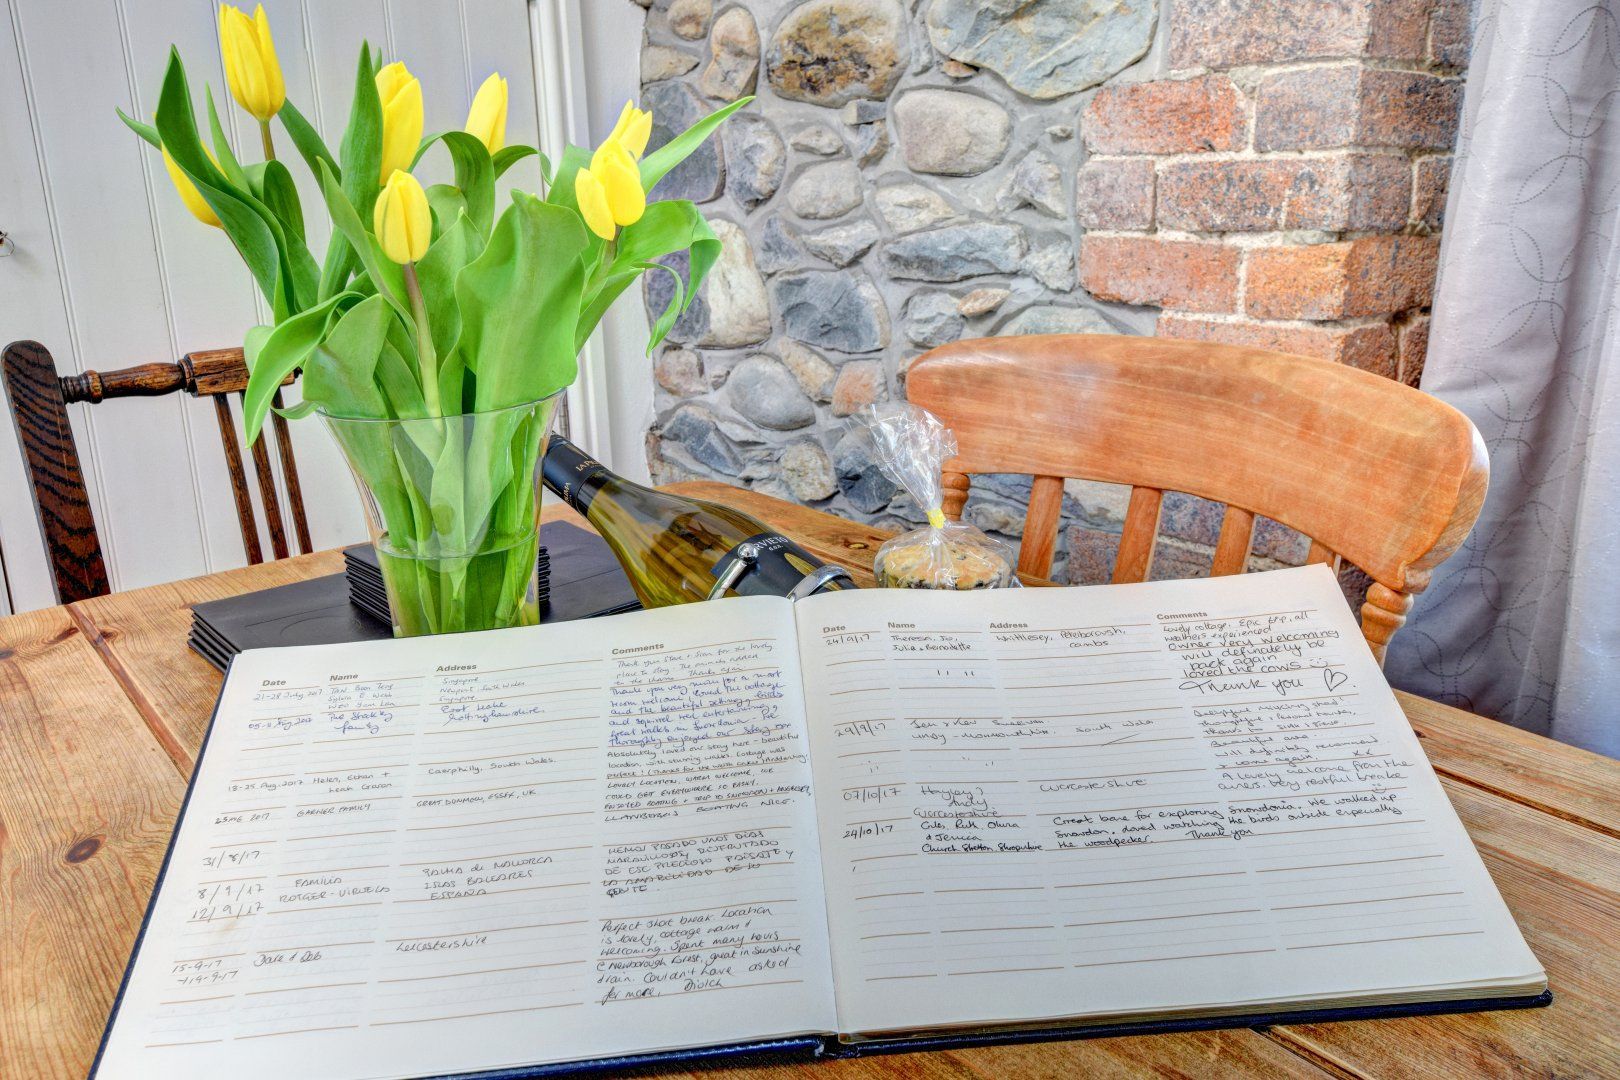 ORVIETO
Date Name Address Comments
21-28 July 2017
Singapore
Newport, South Wales
Singapore
Thank you
place to stay. The animals added
to the charm. Thanks again
05-11 Aug 2017 The
family
East Leake
Nottinghamshire.
Thank you very much for a most
warm welcome, loved the cottage
and the beautiful setting,
and squirrel
great walks in Snowdonia. We
Thoroughly enjoyed our stay
18-25 Aug. 2017 Helen, Ethan +
Leah
Caerphilly, South Wales.
Absolutely loved our stay here - beautiful
location, with stunning walks. Cottage was
perfect! (Thanks for the
25 2017 GARNER FAMILY GREAT DUNMOW, ESSEX, UK
LOVELY LOCATION, WARM WELCOME, WE
COULD GET EVERYWHERE SO EASILY.
ENJOYED BOATING + TRIP TO SNOWDON +
LLANBERIS BOATING NICE.
31/8/17
8/9/17
12/9/17
FAMILIA
ROTGER-
PALMA de MALLORCA
ISLAS BALEARES
ESPAÑA
HEMOS PASADO UNOS DIAS
MARAVILLOSOS DISFRUTADO
DE ESE PRECIOSO PAISAJE Y
LA AMABILIDAD DE SU
GENTE.
15-9-17
-19-9-17
Dave & Deb Leicestershire
Perfect short break. Location
is lovely, cottage warm &
welcoming. Spent many hours
@ Newborough Forest, great in sunshine
& rain. Couldn't have asked
for more,
Date Name Address Comments
24/9/17 Theresa, Jo,
Julia & Bernadette
Whittlesey, Peterborough,
Cambs
Lovely cottage. Epic trip, all
weathers experienced
owner very welcoming
will definately be
back again
loved the cows
Thank you
29/9/17
South Wales
Thoughtful, personal touches,
thanks
Beautiful area.
will definitely recommend
& come again. xx
07/10/17 Hayley &
Andy.
Worcestershire
Worcestershire
A lovely welcome from the
owners. Very restful break
24/10/17 Giles, Ruth, Olivia
& Jessica
Church Stretton Shropshire
Great base for exploring Snowdonia. We walked up
Snowdon. Loved watching the birds outside especially
the woodpecker. Thank you